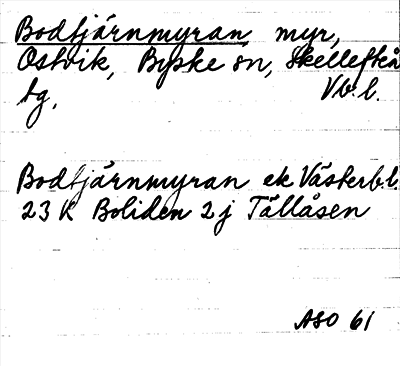 Bodtjärnmyran, myr,
Ostvik, Byske sn, Skellefteå
tg. Vb.l.
Bodtjärnmyran ek Västerb.l.
23 K Boliden 2 j Tällåsen
ASO 61